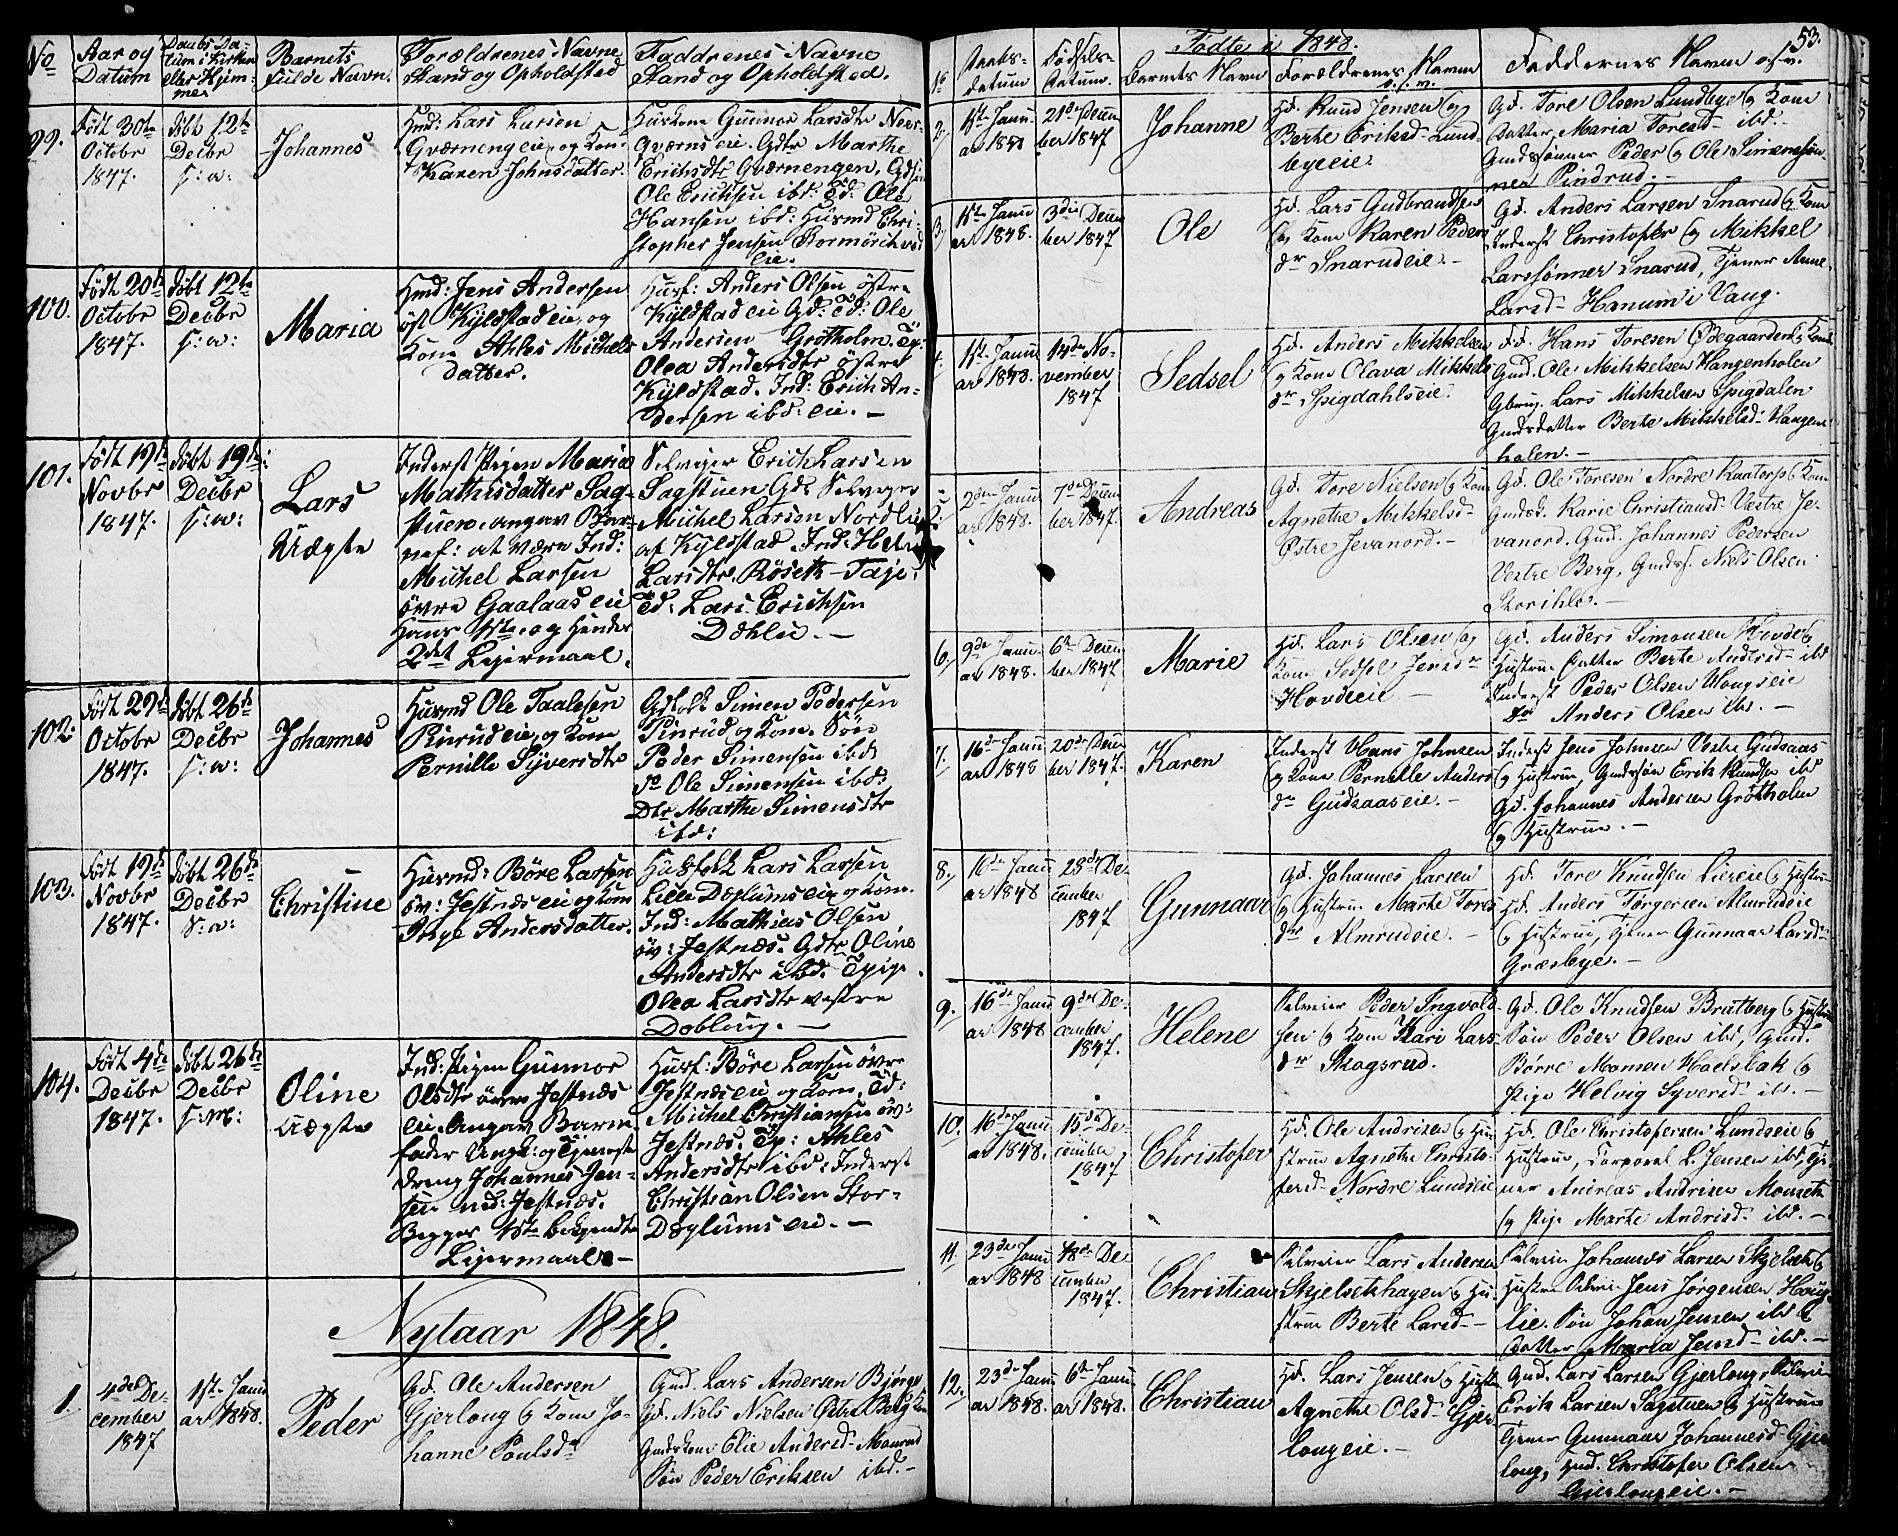 No
Aar og
Datum
Daabs Da-
tum i Kirken
eller Hjem-
me
Barnets
fulde Navn.
Forældrenes Navne
Stand og Opholdsted
Faddrenes Navne
Stand og Opholdsted.
99.
Født 30te
Octobr
1847.
døbt 12te
Decbr
s: a:
Johannes
Husd: Lars Larsen
Gværnengeie, og Kone
Karen Johnsdatter.
Huskone Gunnor Larsdtr Nær-
Gværnseie. Gdtr Marthe
Erichsdtr Gværnengen, Gdsøn
Ole Erichsen ibd: Td: Ole
Hansen ibd: Husmd Chri-
stopher Jensen Bormörch
eie.
100.
Født 20de
Octobr
1847.
døbt 12te
Decbr
s: a:
Maria
Hmd: Jens Andersen
øst Kyldstadeie, og
Kone Ahles Michels
datter.
Husf: Anders Olsen østre
Kyldstadeie Gd: Td: Ole
Andersen Grøtholm. Tp:
Olea Andersdtr östre
Kyldstad. Ind: Erich An-
dersen ibd: eie. —
101.
Født 19de
Novbr
1847.
døbt 19de
Decbr
s: a:
Lars
Uægte
Inderst Pigen Maria
Mathisdatter Sag-
stuen. angav Bar-
nef: at være Ind:
Michel Larsen
øvre Gaalaaseie
Hans 1ste og hendes
2det Leiermaal.
Selveier Erich Larsen
Sagstuen Gd: Selveyer
Michel Larsen Nordlie
af Kyldstad. Ind: Helene
Larsdtr. Röseth-Taje.
Td: Lars Erichsen
Dæhlie. —
102:
Født 29de
Octobr
1847.
døbt 26de
Decbr
s: a:
Johannes
Husmd Ole Taalesen
Pinrudeie, og Kone
Pernille Syversdtr
Gdfolk Simen Pedersen
Pinrud og Kone. Søn
Peder Simensen ibd:
So Ole Simensen ibd:
Dtr Marthe Simensdtr
ibd:
103.
Født 19de
Novbr
1847.
døbt 26de
Decbr
s: a:
Christine
Husmd: Böre Larsen
öv: Jestnæseie og Kone
Inge Andersdatter.
Husfolk Lars Larsen
Lille Doglumseie, og Kone.
Ind: Mathias Olsen
öv: Jestnæs. Gdtr Oline
Andersdtr ibd. Tpige.
Olea Larsdtr vestre
Doblong. —
104.
Født 4de
Decbr
1847.
døbt 26de
Decbr
s: a:
Oline
Uægte
Ind: Pigen Gunnor
Olsdtr övre Jestnæs
eie. Angav Barne-
fader Ungk: og Tjeneste
dreng Johannes Jen-
sen ned: Jestnæs.
Begges 1ste bekjendte
Leiermaal —
Husf: Böre Larsen övre
Jestnæseie og Kone. Td:
Michel Christiansen öv:
Jestnæs. Tp: Ahles
Andersdtr ibd: Inderst
Christian Olsen Stor-
Doglumseie. —
Nytaar 1848.
1.
4de De-
cember
1847
1ste Janu
ar 1848.
Peder
Gd. Ole Andersen
Gjerloug & Kone Jo-
hanne Poulsdr
Gmd. Lars Andersen Bjørge
Gd. Niels Nielsen Østre Berg
Gaardskone Elie Andersd- Maurud
Søn Peder Eriksen ibd.-
Fødte i 1848.
53.
No
Daabs-
datum
Fødsels-
datum.
Barnets Navn
Forældrenes Navn
o.s.v.
Faddernes Navn o.s.v.
2.
1ste Janu-
ar 1848
21de Decem
ber 1847
Johanne
Hd. Knud Jensen &
Berte Eriksd- Lund
byeeie.
Gd. Tore Olsen Lundbye & Kone
Datter Maria Toresd- ibd.
Gaardssønner Peder & Ole Simensøn-
ner Pindrud. —
3.
1ste Janu
ar 1848.
3die Decem
ber 1847
Ole
Hd. Lars Gudbrandsen
& Kone Karen Peders
dr Snarudeie. -
Gd. Anders Larsen Snarud & Kone
Inderst Christofer & Mikkel
Larssønner Snarud, Tjener Anne
Larsd- Hanum i Vang.
4.
1ste Janu
ar 1848.
14de No-
vember
1847
Sedsel
Hd. Anders Mikkelsen
& Kone Olava Mikkels
dr Spigdahlseie.
Hd. Hans Toresen Ødegaarden & Kone
Gmd. Ole Mikkelsen Hangenholen
Gbrug. Lars Mikkelsen Spigdalen
Gaardsdatter Berte Mikkelsd- Hangen
holen. -
5.
2den Janu
ar 1848.
7de Decem
ber 1847.
Andreas
Gd. Tore Nielsen & Kone
Agnethe Mikkelsd-
Østre Jevanord. -
Gd. Ole Toresen Nordre Kaatorp & Kone
Gaardsd. Karie Christiansd- Vestre Je-
vanord. Gmd. Johannes Pedersen
Vestre Berg, Gaardss. Niels Olsen
Storihle. -
6.
9de Janu-
ar 1848.
6te Decem
ber 1847
Marie
Hd. Lars Olsen &
Kone Sedsel Jensdr
Hovdeeie. -
Gd. Anders Simensen Hovde &
Hustrue Datter Berte Andersd- ibd
Inderst Peder Olsen Hougseie
Do Anders Olsen ibd. -
7.
16de Janu
ar 1848
20de Decem
ber 1847.
Karen
Inderst Hans Johnsen
& Kone Pernille Anders
dr Gudsaaseie. -
Inderst Jens Johnsen Vestre Gudsaas
& Hustrue, Gaardssøn Erik Knudsen ibd
Gd. Johannes Andersen Grøtholm
& Hustrue. -
8.
16de Janu
ar 1848
28de De-
cember
1847
Gunnaar
Gd. Johannes Larsen
& Hustrue Marte Tores
dr Almrudeie. -
Hd. Tore Knudsen Liereie & Hustrue
Hd. Anders Torgersen Almrudeie
& Hustrue, Tjener Gunnaar Larsd-
Græsbye. -
9.
16de Janu
ar 1848
9de De-
cember
1847.
Helene
Selveier Peder Ingvold-
sen & Kone Kari Lars
dr Skogsrud.
Gd. Ole Knudsen Brutberg & Hustrue
Søn Peder Olsen ibd, Gmd.
Børre Monsen Hoelsbak &
Pige Helvig Syversd- ibd. -
10.
16de Janu
ar 1848.
15de De-
cember
1847
Christofer
Hd. Ole Andrisen & Hu-
strue Agnethe Christo-
fersd- Nordre Lundseie
Hd. Ole Christofersen Lundseie &
Hustrue, Corporal L. Jensen ibd, Tje-
ner Andreas Andrisen Mouseth
& Pige Marte Andrisd- ibd. -
11.
23de Janu
ar 1848
18de De-
cember
1847.
Christian
Selveier Lars Andersen
Skjelsethagen & Hu-
strue Berte Larsd-
Selveier Johannes Larsen Skjelseth &
Hustrue Selvei- Jens Jørgensen Houg-
lie. Søn Johan Jensen ibd &
Datter Maria Jensd- ibd. -
12.
23de Janu
ar 1848.
6te Janu
ar 1848.
Christian
Hd. Lars Jensen & Hustrue
Agnethe Olsd- Gjer
lougeie. -
Gmd. Lars Larsen Gjerloug, Selvei
Erik Larsen Sagstuen & Hustrue
Tjener Gunnaar Johannesd- Gjer
loug, Gmd. Christofer Olsen
Gjerlougeie. -